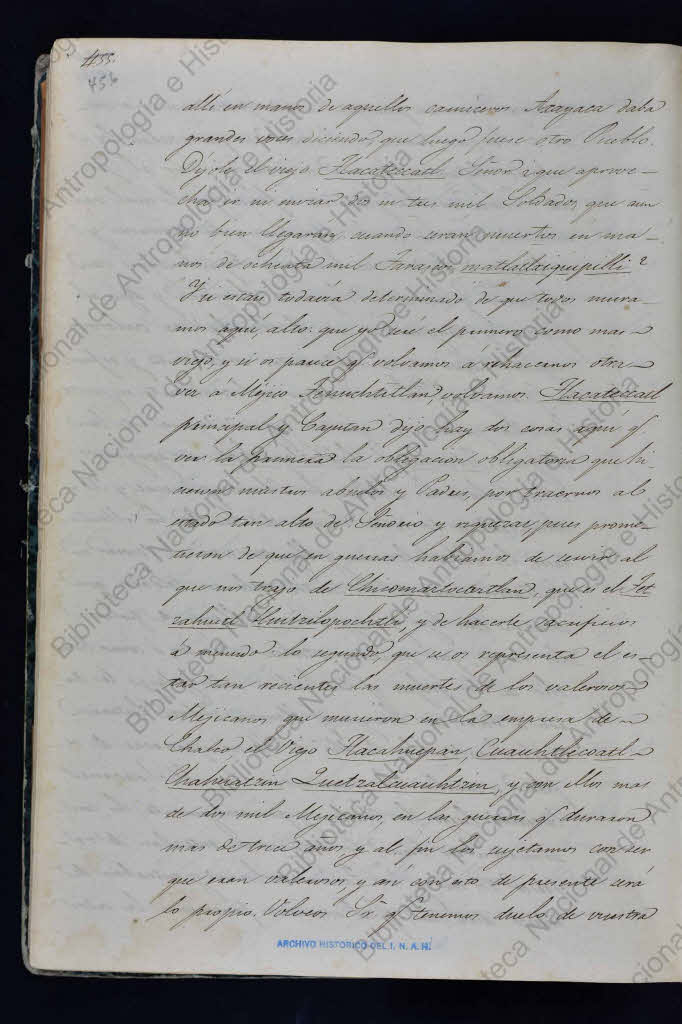 455.
456
allé en manos de aquellos carniceros. Axayaca daba
grandes voces diciendo, que luego fuese otro Pueblo.
Díjole el viejo Tlacateccatl Señor ¿que aprove-
cha ir ni enviar dos ni tres mil Soldados, que aun
no bien llegarán cuando seran muertos en ma-
nos de ochenta mil Tarascos, matlatlaiquipilli?
Y si estais todavia determinado de que todos mura-
mos aquí, alto: que yo seré el primero como mas
viejo, y si os parece q. volvamos á rehacernos otra
vez á Méjico Tenuchtitlan, volvamos. Tlacateccatl
principal y Capitan dijo hay dos cosas aquí q.
ver la primera la obligacion obligatoria que hi-
cieron nuestros abuelos y Padres, por traernos al
estado tan alto de Señorio y riquezas, pues prome-
tieron de que en guerras habiamos de servir al
que nos trajo de Chicomoztocaztlan, que es el Tet
zahuitl Huitzilopochtli y de hacerle sacrificios
á menudo: lo segundo, que se os representa el es-
tar tan recientes las muertes de los valerosos
Mejicanos que murieron en la empresa de
Chalco el Viejo Tlacahuepan, Cuauhtlecoatl
Chahuatzin Quetzalcuauhtzin, y con ellos mas
de dos mil Mejicanos, en las guerras q. duraron
mas de trece años y al fin los sujetamos con ser
que eran valerosos, y así con esto de presente será
lo propio. Volveos Sr. q. tenemos duelo de vuestra
ARCHIVO HISTORICO DEL I. N. A. H.
Biblioteca Nacional de Antropología e Historia